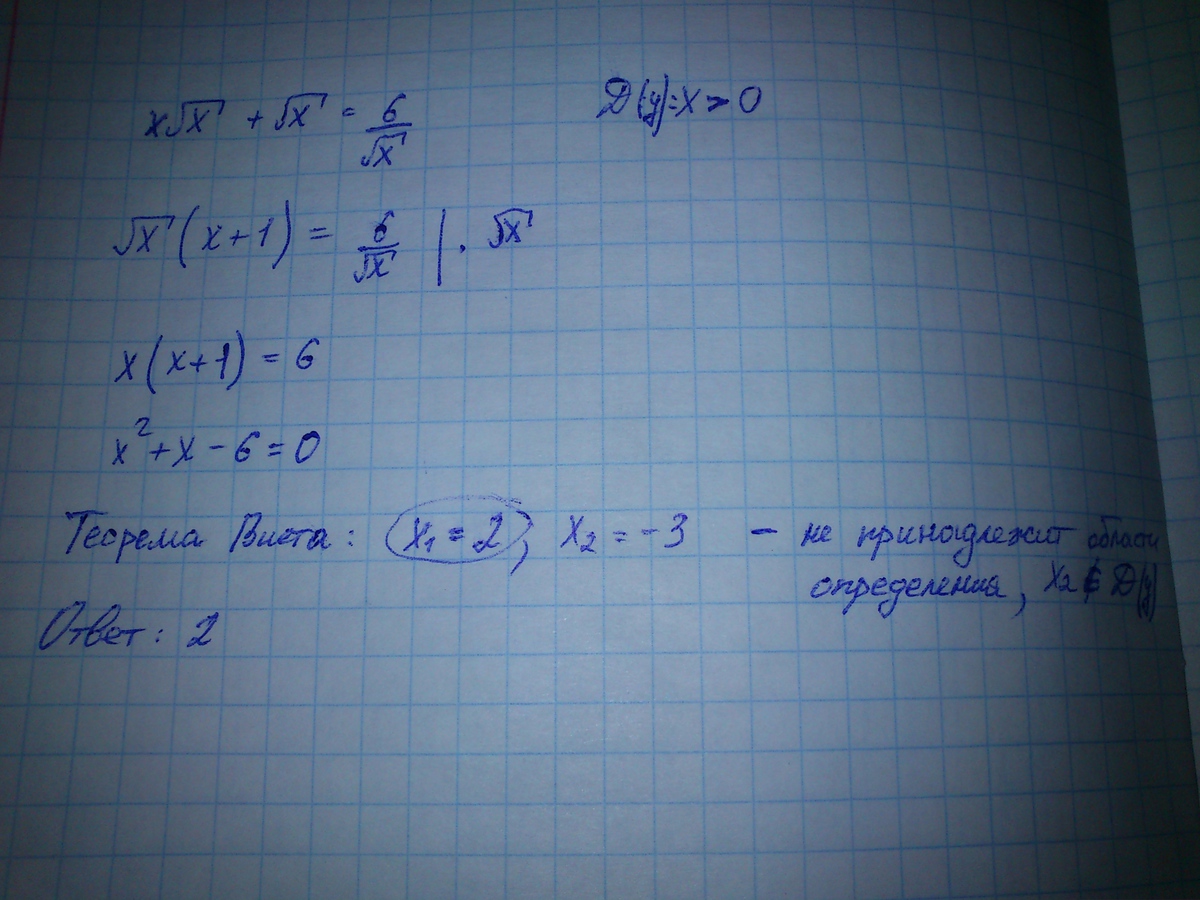 x√x + √x = 6/√x
D(y): x > 0
√x (x+1) = 6/√x | · √x
x(x+1) = 6
x² + x - 6 = 0
Теорема Виета: x₁ = 2, x₂ = -3 - не принадлежит области
определения, x₂ ∉ D(y)
Ответ: 2